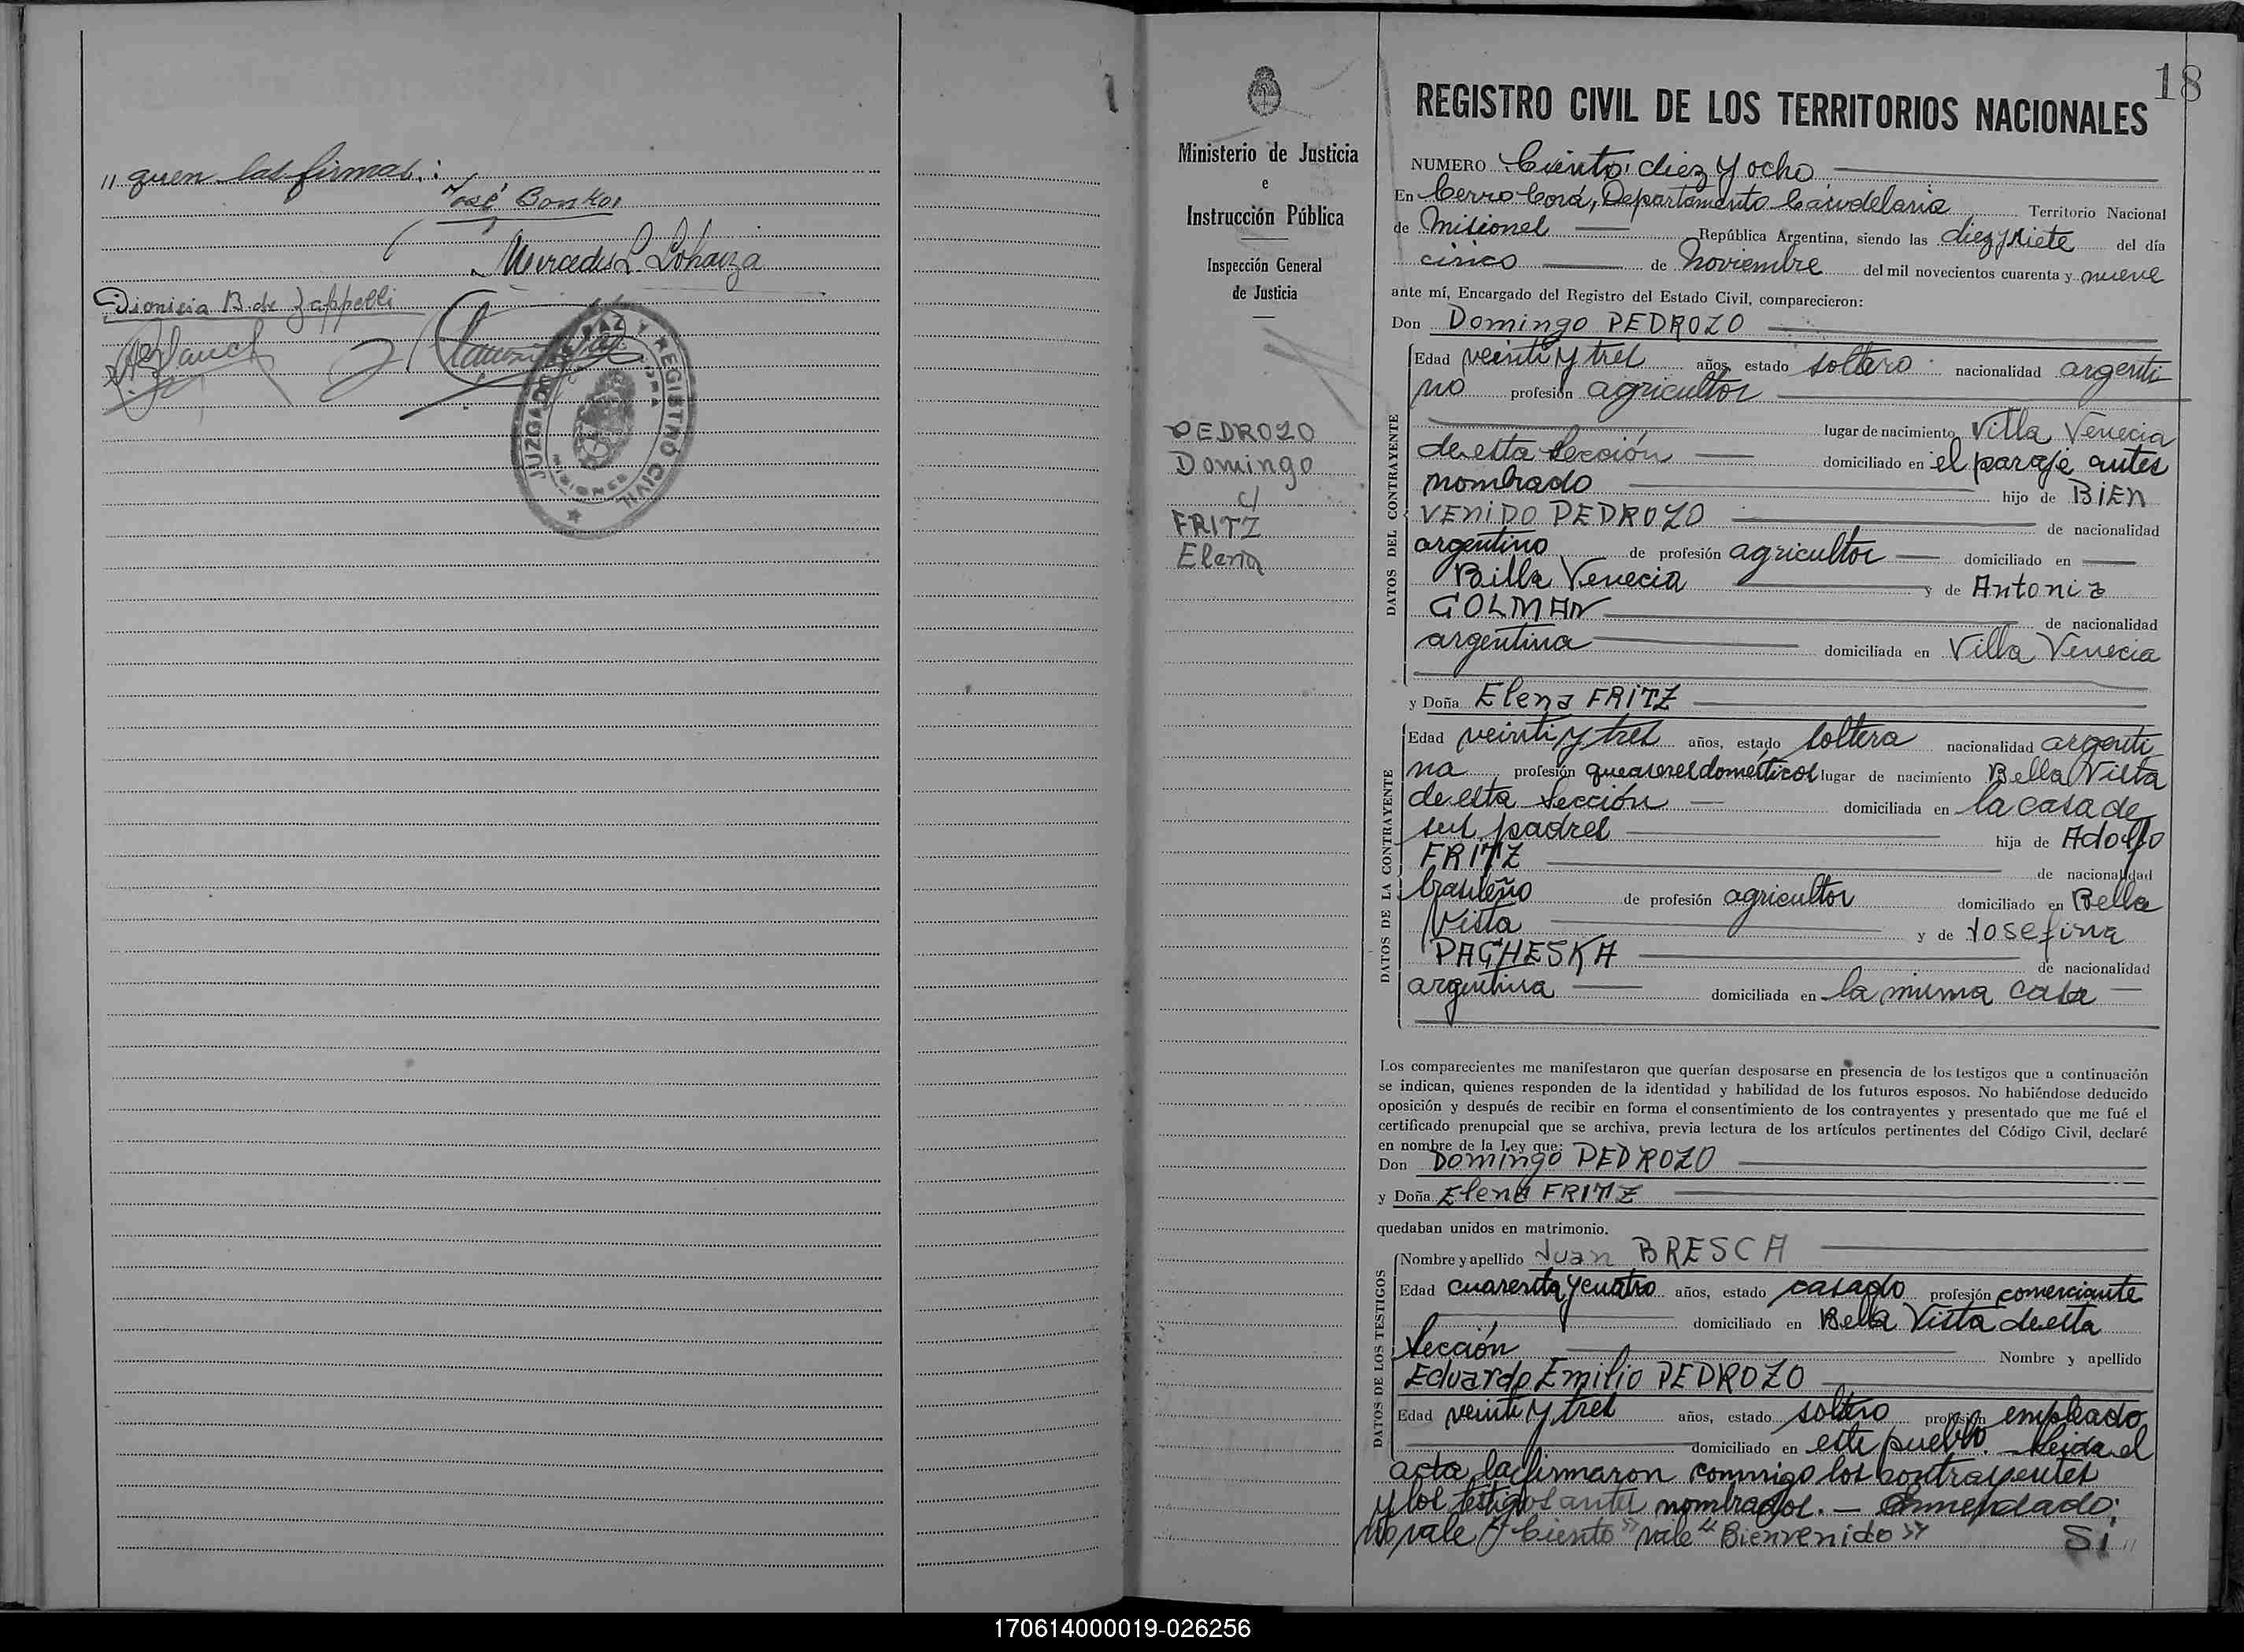 " quen las firmas:
José Conkos
Mercedes L. Lohaiza
Dionisia B. de Zappelli
JUZGADO DE PAZ Y REGISTRO CIVIL
MISIONES
18
Ministerio de Justicia
e
Instrucción Pública
Inspección General
de Justicia
PEDROZO
Domingo
c/
FRITZ
Elena
REGISTRO CIVIL DE LOS TERRITORIOS NACIONALES
NUMERO Ciento diez y ocho
En Cerro Corá, Departamento Candelaria Territorio Nacional
de Misiones República Argentina, siendo las diez y siete del día
cinco de Noviembre del mil novecientos cuarenta y nueve
ante mí, Encargado del Registro del Estado Civil, comparecieron:
Don Domingo PEDROZO
DATOS DEL CONTRAYENTE
Edad veinti y tres años, estado soltero nacionalidad argenti
no profesión agricultor
lugar de nacimiento Villa Venecia
de esta Sección domiciliado en el paraje antes
nombrado hijo de BiEN
VENiDO PEDROZO de nacionalidad
argentino de profesión agricultor domiciliado en
Billa Venecia y de Antonia
GOLMAN de nacionalidad
argentina domiciliada en Villa Venecia
y Doña Elena FRiTZ
DATOS DE LA CONTRAYENTE
Edad veinti y tres años, estado soltera nacionalidad argenti
na profesión queaseres domésticos lugar de nacimiento Bella Vista
de esta Sección domiciliada en la casa de
sus padres hija de Adolfo
FRITZ de nacionalidad
brasileño de profesión agricultor domiciliado en Bella
Vista y de Josefina
PAGHESKA de nacionalidad
argentina domiciliada en la misma casa
Los comparecientes me manifestaron que querían desposarse en presencia de los testigos que a continuación
se indican, quienes responden de la identidad y habilidad de los futuros esposos. No habiéndose deducido
oposición y después de recibir en forma el consentimiento de los contrayentes y presentado que me fué el
certificado prenupcial que se archiva, previa lectura de los artículos pertinentes del Código Civil, declaré
en nombre de la Ley que:
Don Domingo PEDROZO
y Doña Elena FRITZ
quedaban unidos en matrimonio.
DATOS DE LOS TESTIGOS
Nombre y apellido Juan BRESCA
Edad cuarenta y cuatro años, estado casado profesión comerciante
domiciliado en Bella Vista de esta
Sección Nombre y apellido
Eduardo Emilio PEDROZO
Edad veinti y tres años, estado soltero profesión empleado
domiciliado en este pueblo. – Leida el
acta, la firmaron conmigo los contrayentes
y los testigos antes nombrados. — Enmendado:
No vale "Ciento" vale "Bienvenido" Si "
170614000019-026256